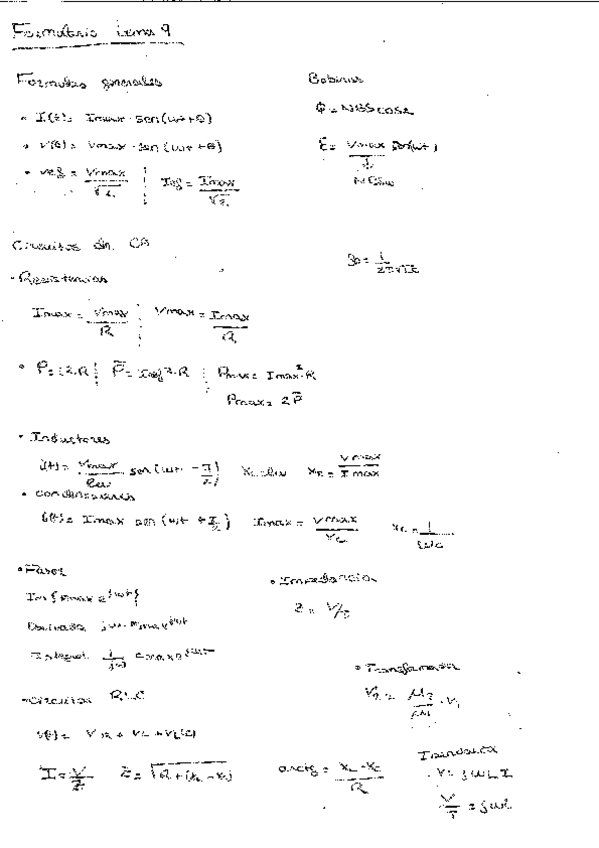 Formulario tema 9
Formulas generales
• I(t) = Imax · sen(wt+θ)
• V(t) = Vmax · sen(wt+θ)
• Vef = Vmax/√2 | Ief = Imax/√2
Bobinas
Φ = NBS cosα
ε = Vmax sen(wt)
NBSw
Circuitos en CA
f0 = 1/2π√LC
• Resistencias
Imax = Vmax/R | Vmax = Imax/R
• P = i2·R | P̄ = Ief2·R | Pmax = Imax2·R
Pmax = 2P̄
• Inductores
i(t) = Vmax/Lw sen(wt - π/2) XL = Lw XL = Vmax/Imax
• condensadores
i(t) = Imax sen(wt + π/2) Imax = Vmax/Xc Xc = 1/wc
• Fasor
Im{Emax e^jwt}
Derivada jw · Emax e^jwt
Integral 1/jw Emax e^jwt
• Impedancia
Z = V/I
• Transformador
V2 = N2/N1 · V1
• Circuitos RLC
V(t) = VR + VL + VC(t)
I = V/Z Z = √R+(XL-Xc) arctg = XL-Xc/R
V = jwL I
V/I = jwL